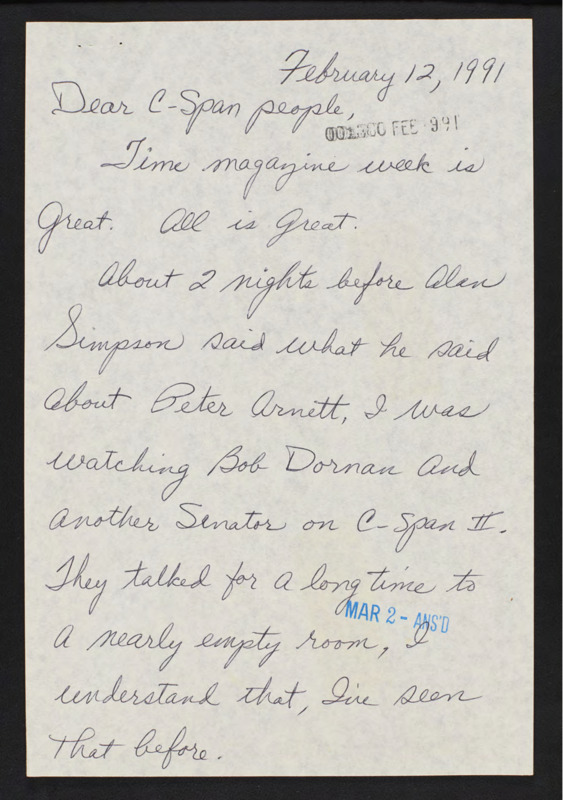 February 12, 1991
Dear C-Span people,
FEB 991
Time magazine week is
Great. All is Great.
About 2 nights before Alan
Simpson said what he said
about Peter Arnett, I was
watching Bob Dornan and
another Senator on C-Span II.
They talked for a long time to
MAR 2 - ANS'D
a nearly empty room, I
understand that, I've seen
that before.